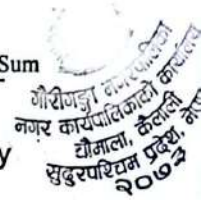 Sum
गौरीगङ्गा नगरपालिका
नगर कार्यपालिकाको कार्यालय
चौमाला, कैलाली
सुदुरपश्चिम प्रदेश, नेपाल
२०७३
y